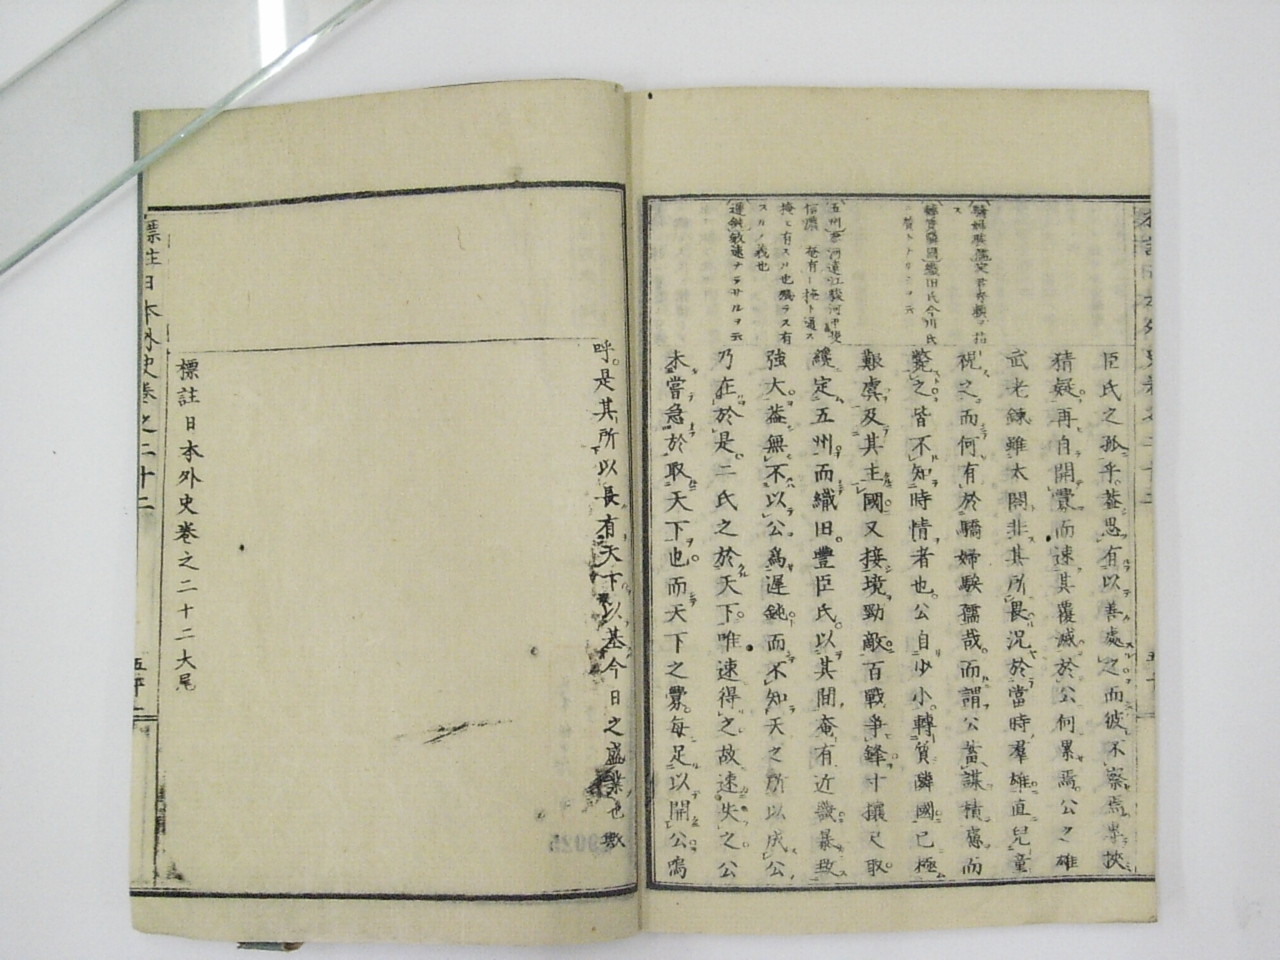 臣氏之孤乎。蓋思有以善處之而彼不察焉專挾
猜疑再自開釁而速其覆滅於公何累焉公之雄
武老鍊雖太閤非其所畏況於當時羣雄直兒童
視之而何有於驕婦騃孺哉而謂公蓄謀積慮而
斃之皆不知時情者也。公自少小轉質隣國已極
艱虞及其主國又接境勁敵百戰爭鋒寸攘尺取
纔定五州而織田豐臣氏以其間奄有近畿暴致
強大蓋無不以公爲遲鈍而不知天之所以成公
乃在於是二氏之於天下。唯速得之故速失之公
未嘗急於取天下也。而天下之釁每足以開公嗚
五州參河遠江駿河甲斐
信濃 奄有ー掩ト通ス
掩ヒ有スル也殘ラス有
スルノ義也
遲鈍敏速ナラサルヲ云
呼。是其所以長有天下以基今日之盛業也歟
標註日本外史卷之二十二大尾
標註日本外史卷之二十二